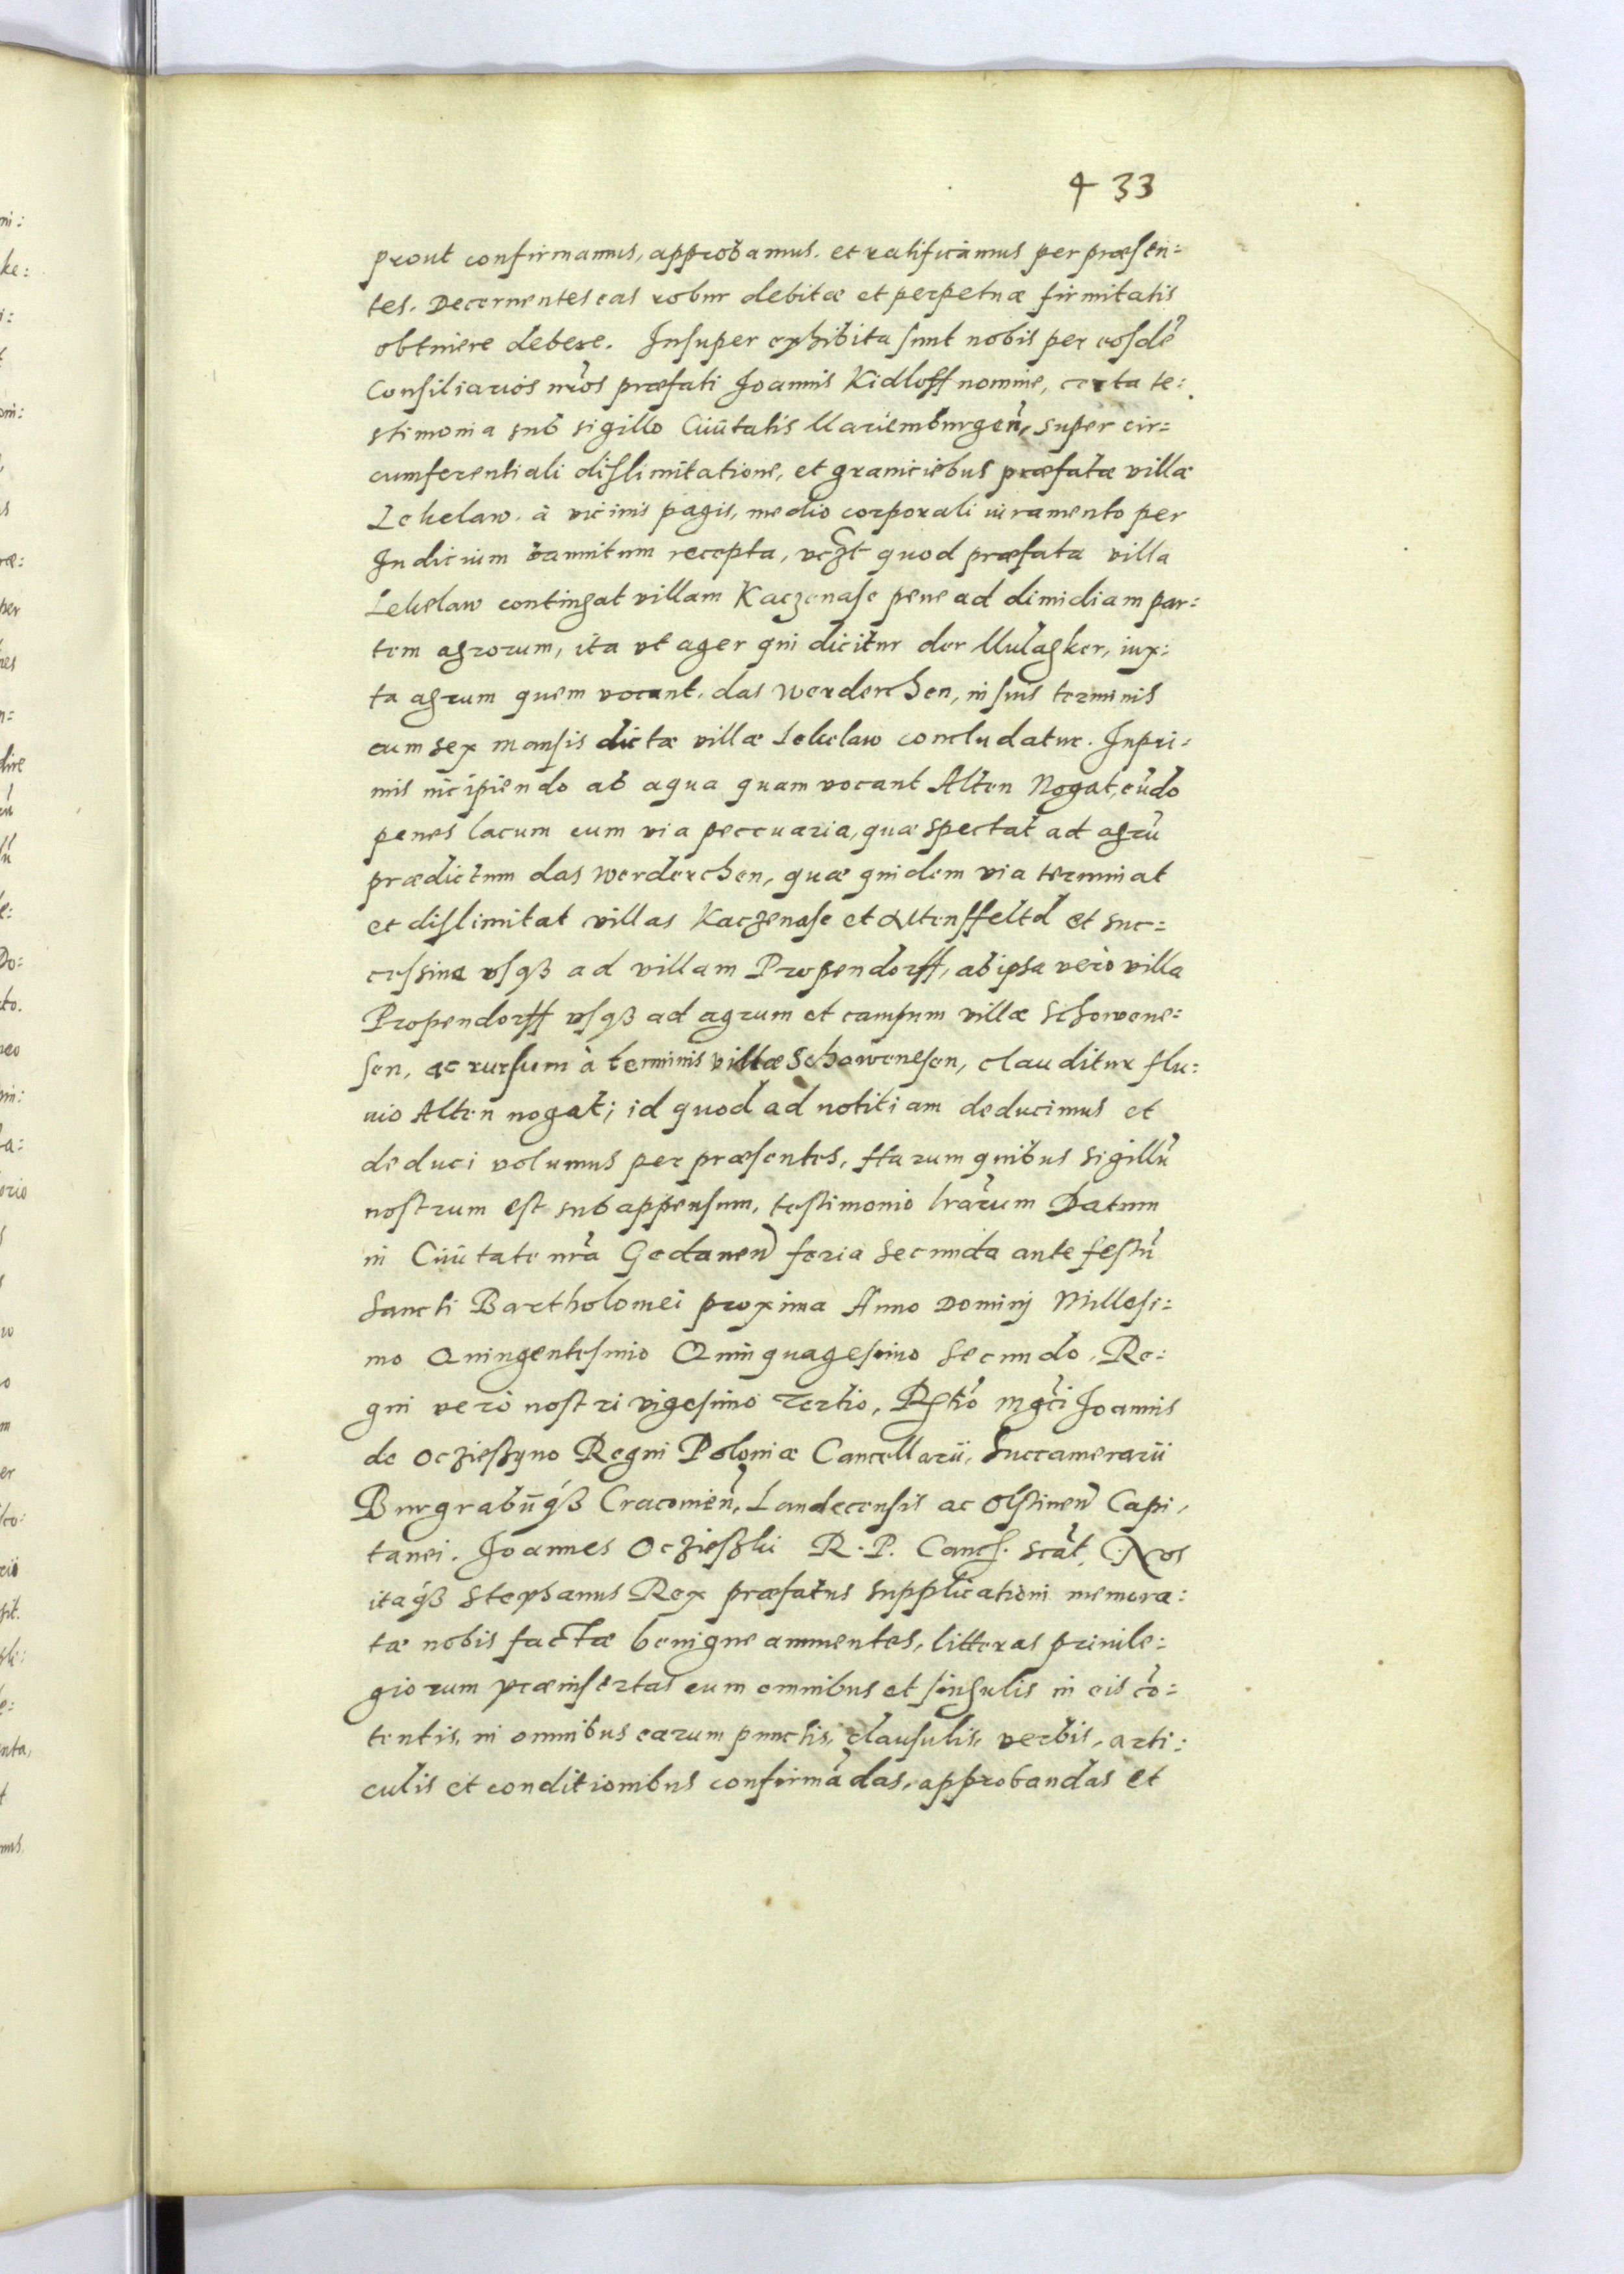 433
prout confirmamus, approbamus, et ratificamus per præsen=
tes. Decernentes eas robur debitæ et perpetuæ firmitatis
obtinere debere. Insuper exhibita sunt nobis per eosdē
Consiliarios nr̃os præfati Joannis Kidloff nomine, certa te:
stimonia sub sigillo Ciuitatis Mariemburgeñ, super cir=
cumferentiali dislimitatione, et graniciebus præfatæ villæ
Lekelaw, à vicinis pagis, medio corporali iuramento per
Iudicium bannitum recepta, vczt quod præfata villa
Lekelaw contingat villam Kaczenase pene ad dimidiam par:
tem agrorum, ita vt ager qui dicitur der Mulagker, iux:
ta agrum quem vocant, das werderchen, in suis terminis
cum sex mansis dictæ villæ Lekelaw concludatur. Inpri=
mis incipiendo ab aqua quam vocant Alten Nogat, eūdo
penes lacum cum via peccuaria, quæ spectat ad agrū
prædictum das werderchen, quæ quidem via terminat
et dislimitat villas Kaczenase et Altenffeltd et suc=
cessiue vsqȝ ad villam Propendorff, ab ipsa verò villa
Propendorff vsqȝ ad agrum et campum villæ Schowene=
sen, ac rursum à terminis villæ Schawenesen, clauditur flu:
uio Alten nogat; id quod ad notitiam deducimus et
deduci volumus per præsentes, Harum quibus sigillū
nostrum est subappensum, testimonio lr̃arum Datum
in Ciuitate nr̃a Gedaneñ feria secunda ante festū
Sancti Bartholomei proxima Anno Dominj Millesi=
mo Quingentesimo Quinquagesimo Secundo, Re=
gni verò nostri vigesimo Tertio, Rȩtiō mgc̄i Joannis
de Oczieszyno Regni Poloniæ Cancellarii, Succamerarii
Burgrabiiqȝ Cracouieñ, Landecensis ac Olstineñ Capi,
tanei. Joannes Oczieszki R. P. Canc. scãt. Nos
itaqȝ Stephanus Rex præfatus supplicationi memora:
tæ nobis factæ benigne annuentes, litteras priuile=
giorum præinsertas cum omnibus et singulis in eis cō=
tentis, in omnibus earum punctis, clausulis, verbis, arti:
culis et conditionibus confirmādas, approbandas et